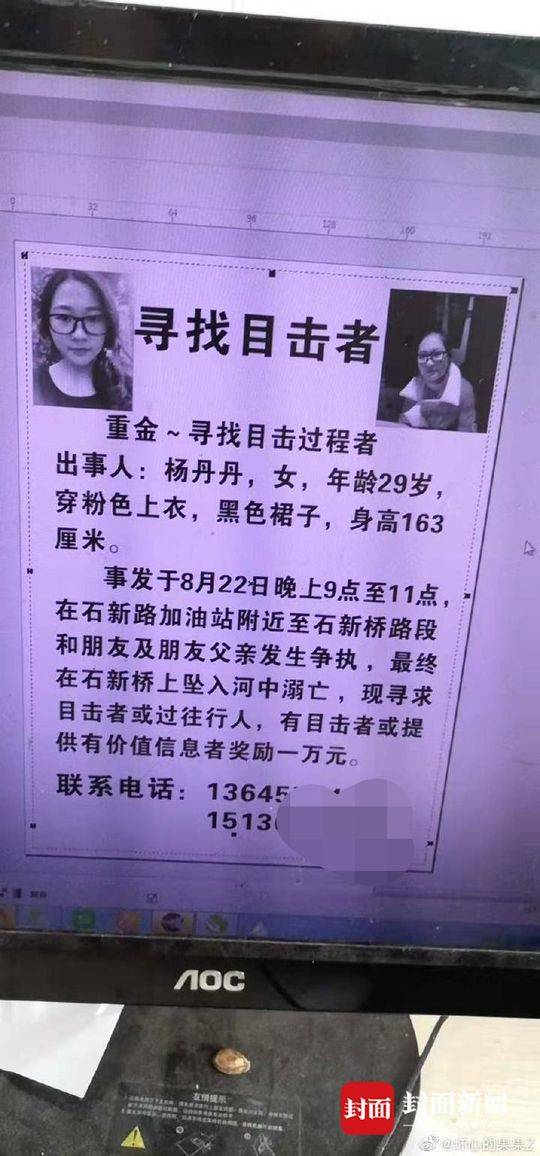 0 32 64 96 128 160 192
寻找目击者
重金~寻找目击过程者
出事人：杨丹丹，女，年龄29岁，
穿粉色上衣，黑色裙子，身高163
厘米。
事发于8月22日晚上9点至11点，
在石新路加油站附近至石新桥路段
和朋友及朋友父亲发生争执，最终
在石新桥上坠入河中溺亡，现寻求
目击者或过往行人，有目击者或提
供有价值信息者奖励一万元。
联系电话：13645
1513
AOC
友情提示
封面 封面新闻
@坏心的果果Z